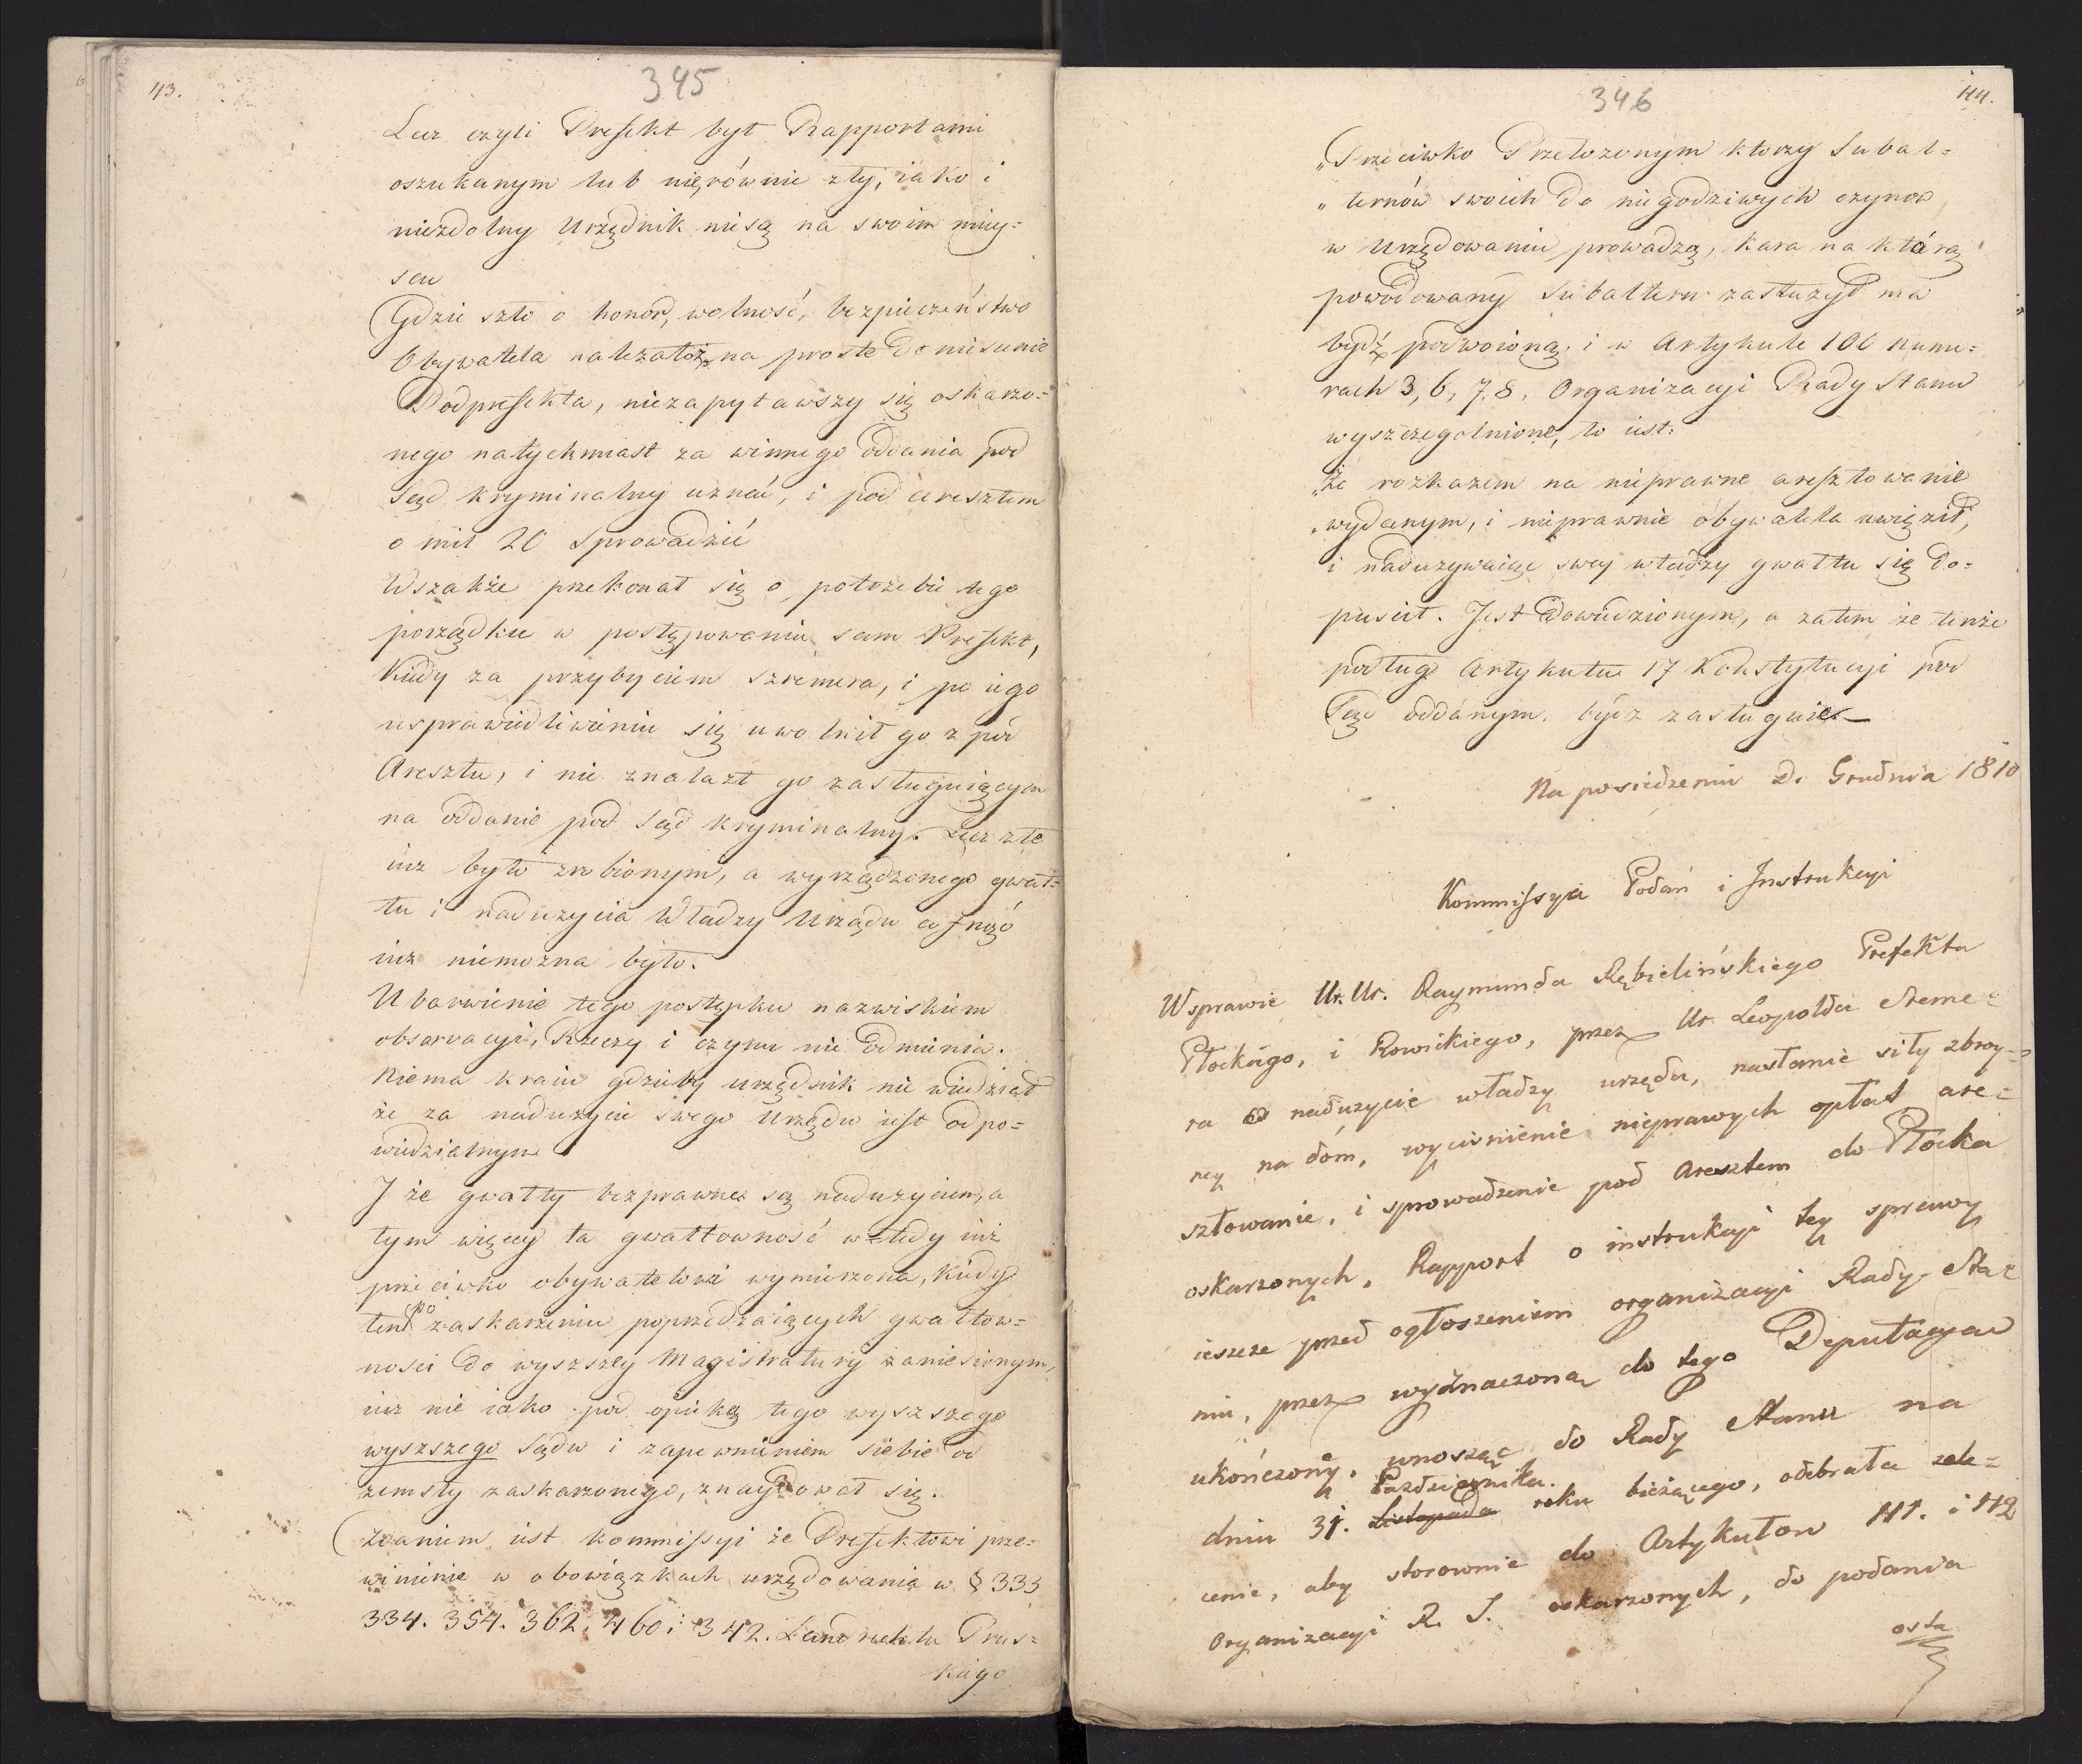 43.
345
Lecz czyli Prefekt był Rapportami
oszukanym lub nierównie zły, iako i
niezdolny Urzędnik nie są na swoim miey=
scu
Gdzie szło o honor, wolność, bezpieczeństwo
Obywatela należałoż na proste doniesienie
Podprefekta, niezapytawszy się oskarżo=
nego natychmiast za winnego oddania pod
Sąd kryminalny uznać, i pod aresztem
o mil 20 sprowadzić
Wszakże przekonał się o potrzebie tego
porządku w postępowaniu sam Prefekt,
kiedy za przybyciem Szremera, i po iego
usprawiedliwieniu się uwolnił go z pod
Aresztu, i nie znalazł go zasługuiącym
na oddanie pod Sąd kryminalny. Lecz złe
iuż było zrobionym, a wyrządzonego gwał=
tu i nadużycia Władzy Urzędu cofnąć
iuż niemożna było.
Ubarwienie tego postępku nazwiskiem
obserwacyi, Rzeczy i czynu nie odmienia.
Niema kraiu gdzieby urzędnik nie wiedział
że za nadużycie swego Urzędu iest odpo=
wiedzialnym
I że gwałty bezprawne są nadużyciem, a
tym więcey ta gwałtowność wtedy iuż
przeciwko obywatelowi wymierzona, kiedy
ten po zaskarżeniu poprzedzaiących gwałtow=
ności do wyższey Magistratury zaniesionym,
iuż nie iako pod opieką tego wyższego
wyższego Sądu i zapewnieniem siebie od
zemsty zaskarżonego, znaydował się.
Zdaniem iest Kommissyi że Prefektowi prze=
winienie w obowiązkach urzędowania w § 333
334. 354. 362. 460 i 342. Landrechtu Prus=
kiego
346
44.
„Przeciwko Przełożonym ktorzy Subal=
„ternów swoich do niegodziwych czynow
w Urzędowaniu prowadzą, kara na którą
powodowany subaltern zasłużył ma
bydź podwoioną. i w Artykule 106 nume=
rach 3, 6, 7, 8, Organizacyi Rady Stanu
wyszczegolnione, to iest:
„że rozkazem na nieprawne aresztowanie
„wydanym, i nieprawnie obywatela uwięził,
i nadużywaiąc swey władzy gwałtu się do=
puścił. Jest dowiedzionym, a zatem że tenże
podług Artykułu 17 Konstytucyi pod
Sąd oddanym bydź zasługuie.
Na posiedzeniu d. Grudnia 1810
Kommissya Podań i Instrukcyi
W sprawie Ur. Ur. Raymunda Rębielińskiego Prefekta
Płockiego, i Rowickiego, przez Ur. Leopolda Sreme=
ra o nadużycie władzy urzędu, nasłanie siły zbroy=
ney na dóm, wyciśnienie nieprawych opłat are=
sztowanie, i sprowadzenie pod Aresztem do Płocka
oskarżonych, Rapport o instrukcyi tey sprawy
ieszcze przed ogłoszeniem organizacyi Rady Sta=
nu, przez wyznaczoną do tego Deputacyą
ukończony, wnosząc do Rady Stanu na
Października.
dniu 31. Listopada roku bieżącego, odebrała zale=
cenie, aby stosownie do Artykułow 111. i 112
Organizacyi R. S. oskarżonych, do podania
osta